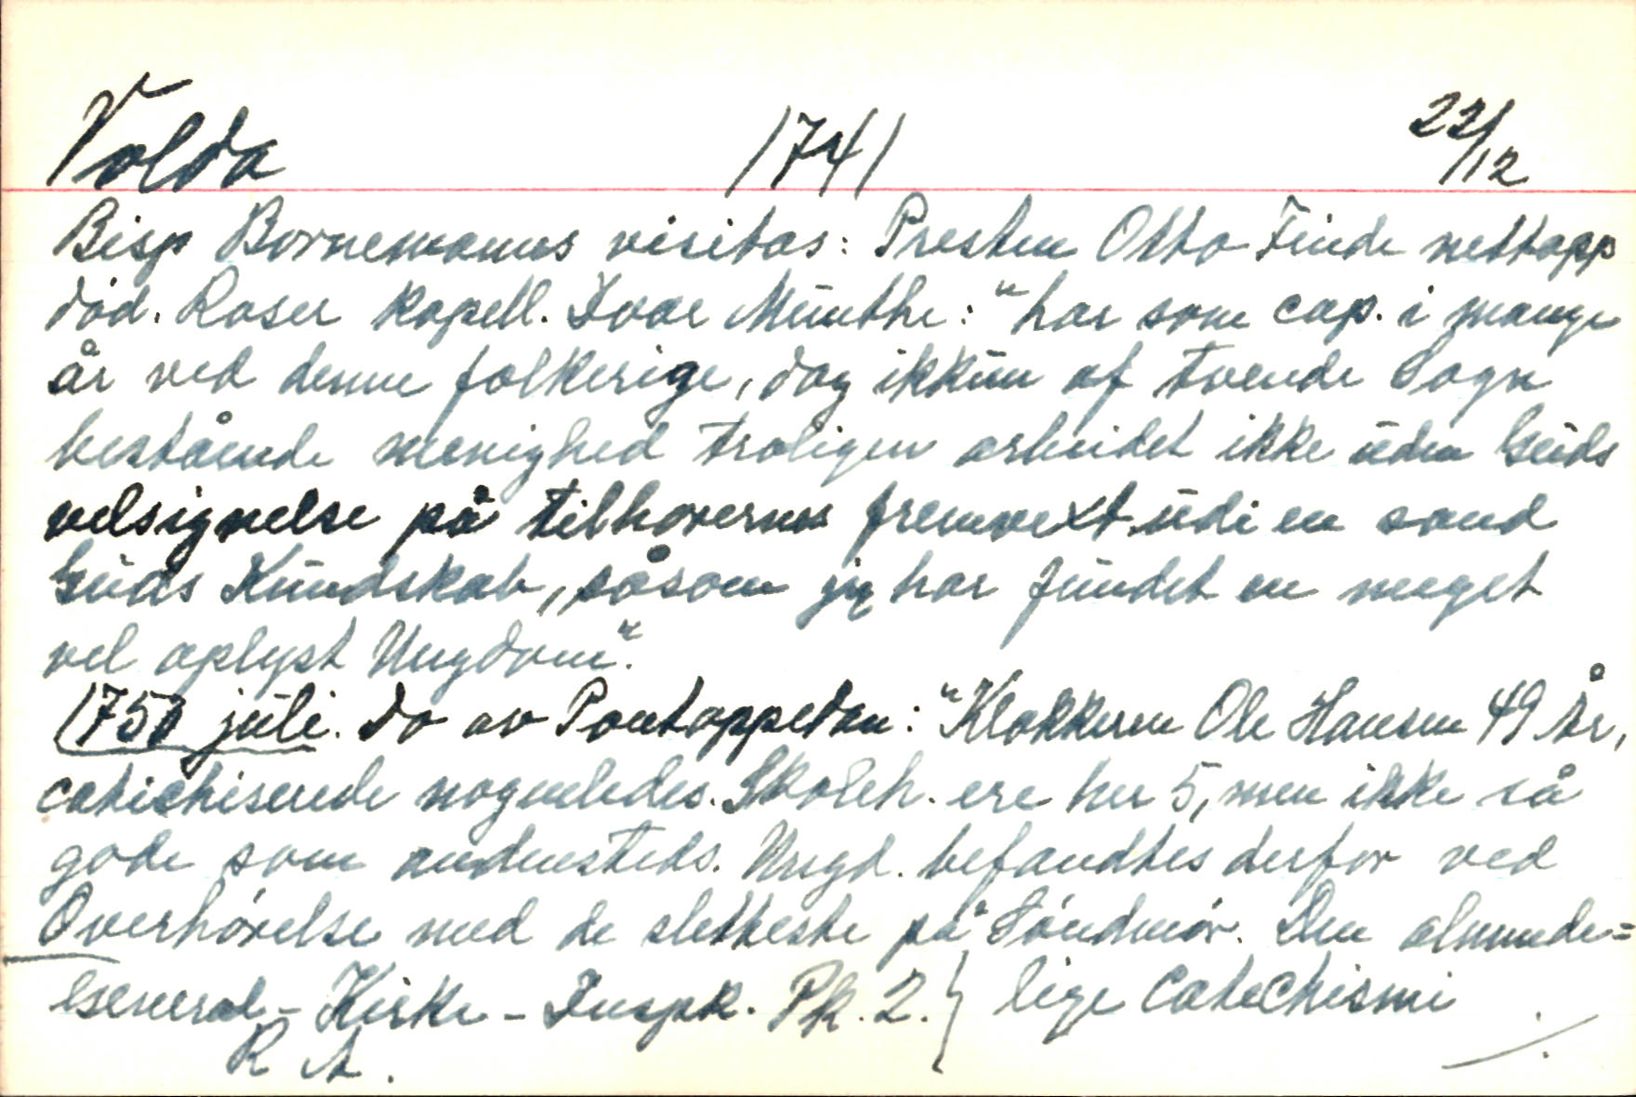 Volda 1741 22/12
Bisp Bornemanns visitas: Presten Otto Finde nettopp
død. Roser kapell. Ivar Munthe: "har som cap. i mange
år ved denne folkerige, dog ikkun af tvende Sogn
bestående menighed troligen arbeidet ikke uden Guds
velsignelse på tilhørernes fremvext udi en sand
Guds Kundskab, såsom jeg har fundet en meget
vel oplyst Ungdom".
1750 juli. Do av Pontoppidan: "Klokkeren Ole Hansen 49 År,
catichiserede nogenledes. Skoleh. ere her 5, men ikke så
gode som andensteds. Ungd. befandtes derfor ved
Overhørelse med de sletteste på Søndmør. Den alminde=
lige Catechismi
General-Kirke-Inspk. Pk. 2.
R A.